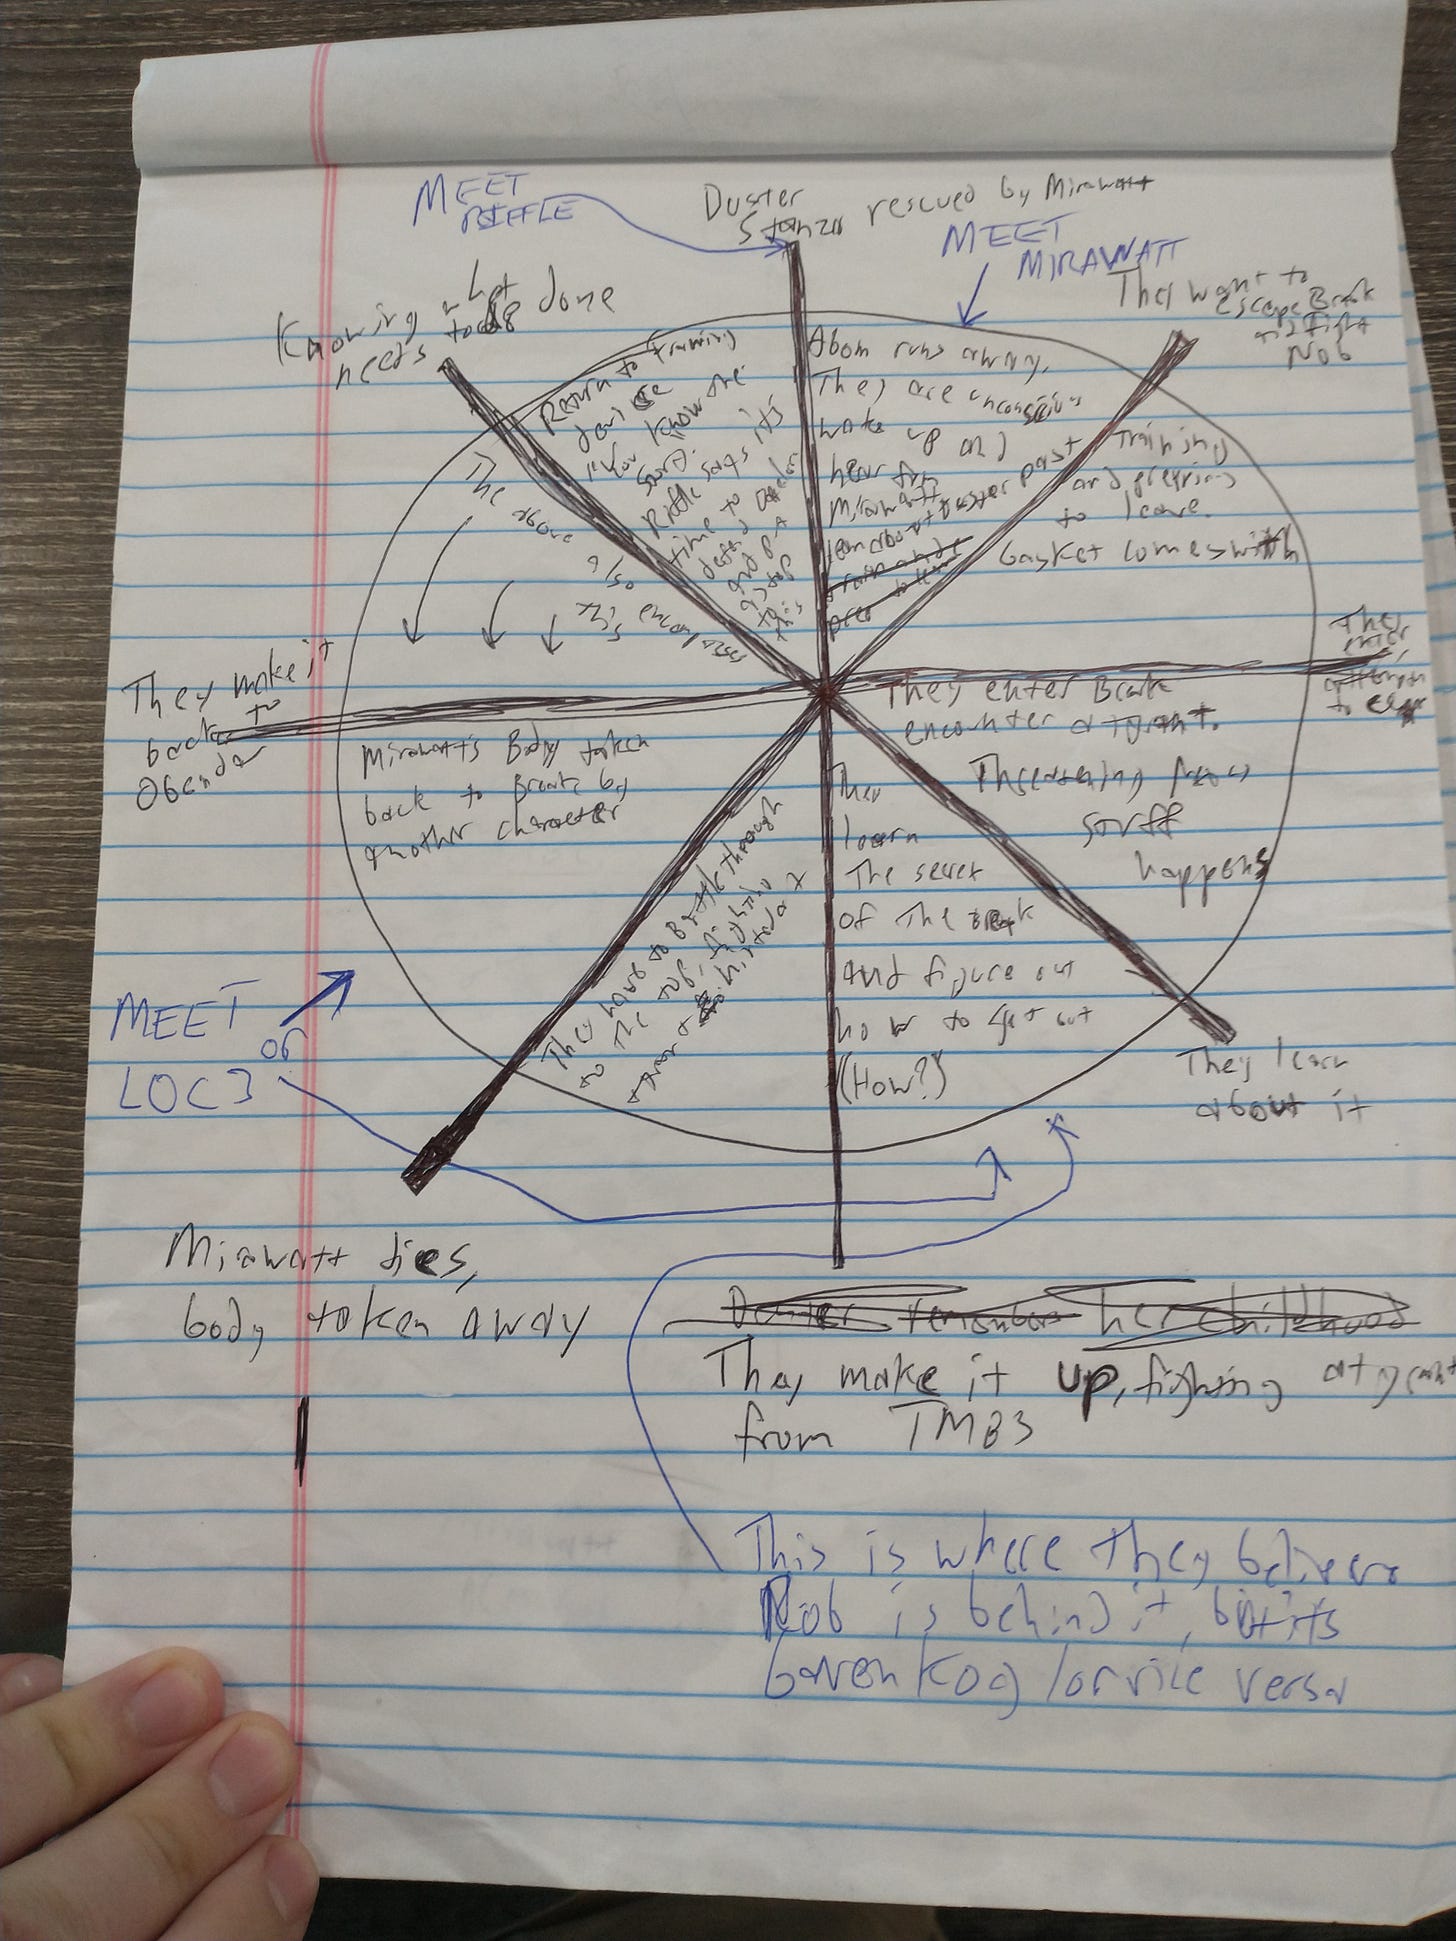 MEET
RIFFLE
Duster
Stanza rescued by Mirawatt
MEET
MIRAWATT
They want to
escape Break
and fight
Nob
Knowing what
needs to be done
Return to training
know the
Riffle says it's
time to
defend
and put
a stop
to this
The above also encompasses
this
Abom runs away.
They are unconscious
wake up and
hear from
Mirawatt
learn about Duster past
Training
and preparing
to leave.
basket comes with
They
enter
They make it
back to
Obenda
Mirawatt's Body taken
back to Break by
another character
They enter Break
encounter atygrant.
Threatening
stuff
happens
They
learn
The secret
of the Break
and figure out
how to get out
(How?)
They have to Battle through
to the top, fighting
They learn
about it
MEET
or
LOC3
Mirawatt dies,
body taken away
Duster remembers her childhood
They make it up, fighting
from TMB3
This is where they believe
Nob is behind it, but its
Gavenkog / or vice versa